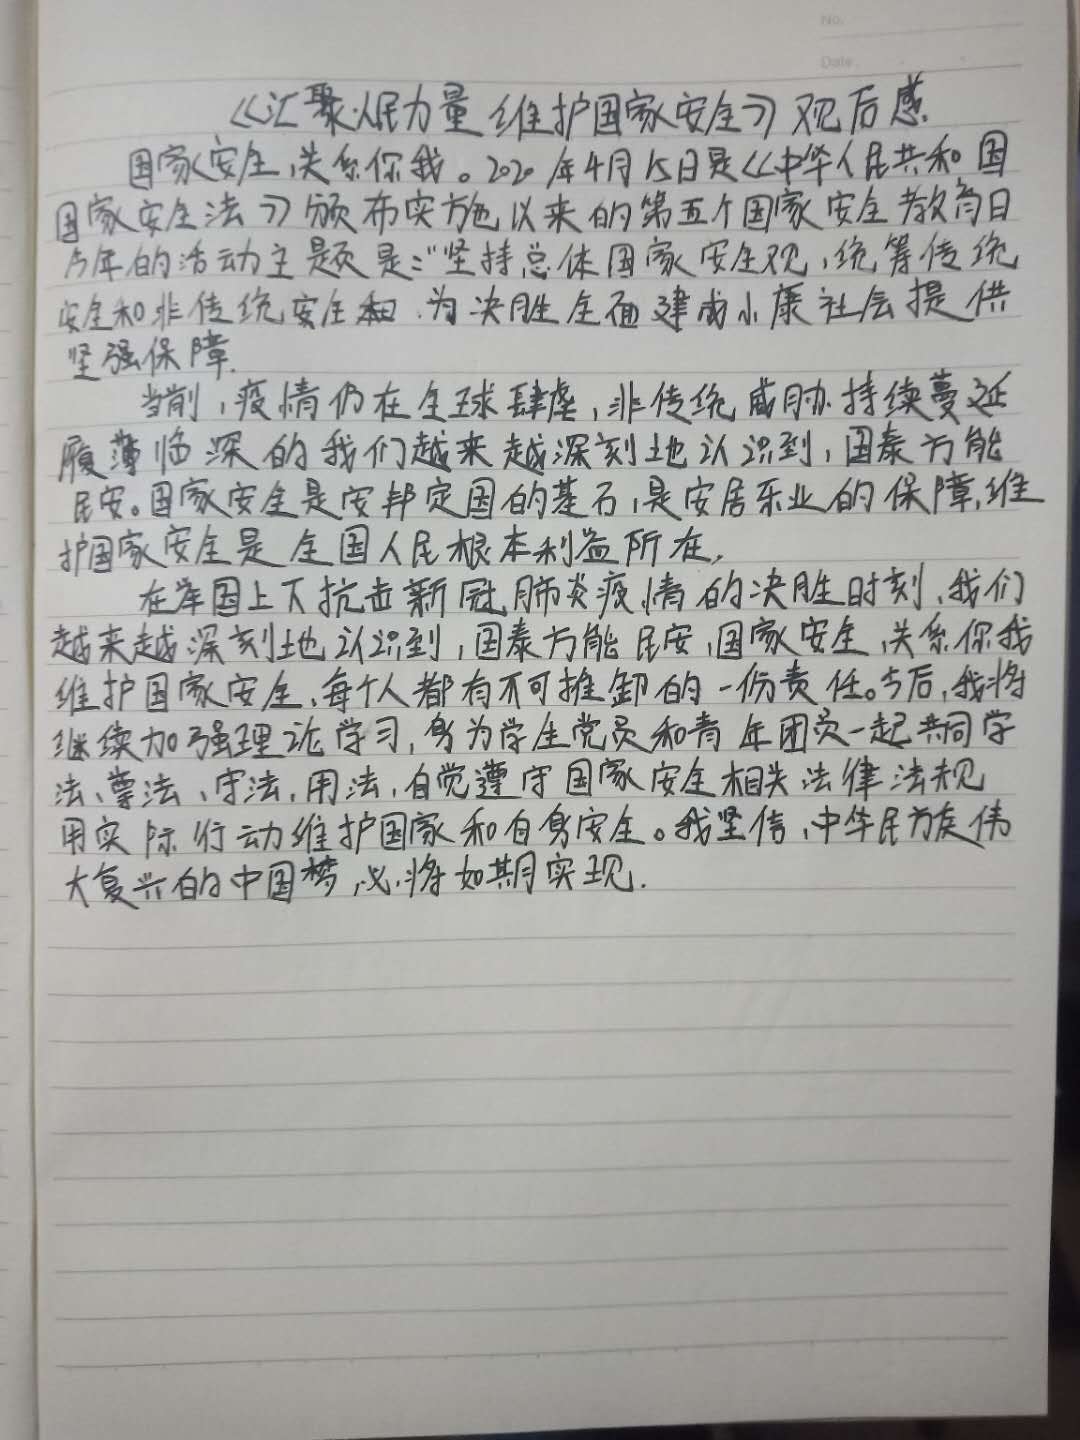 No.
Date
《汇聚人民力量 维护国家安全》观后感
国家安全,关系你我。2020年4月15日是《中华人民共和国
国家安全法》颁布实施以来的第五个国家安全教育日
今年的活动主题是:“坚持总体国家安全观,统筹传统
安全和非传统安全 为决胜全面建成小康社会提供
坚强保障.
当前,疫情仍在全球肆虐,非传统威胁持续蔓延
履薄临深的我们越来越深刻地认识到,国泰方能
民安。国家安全是安邦定国的基石,是安居乐业的保障,维
护国家安全是全国人民根本利益所在,
在举国上下抗击新冠肺炎疫情的决胜时刻,我们
越来越深刻地认识到,国泰方能民安,国家安全,关系你我
维护国家安全,每个人都有不可推卸的一份责任。今后,我将
继续加强理论学习,身为学生党员和青年团员一起共同学
法、尊法、守法,用法,自觉遵守国家安全相关法律法规
用实际行动维护国家和自身安全。我坚信,中华民族伟
大复兴的中国梦,必将如期实现.